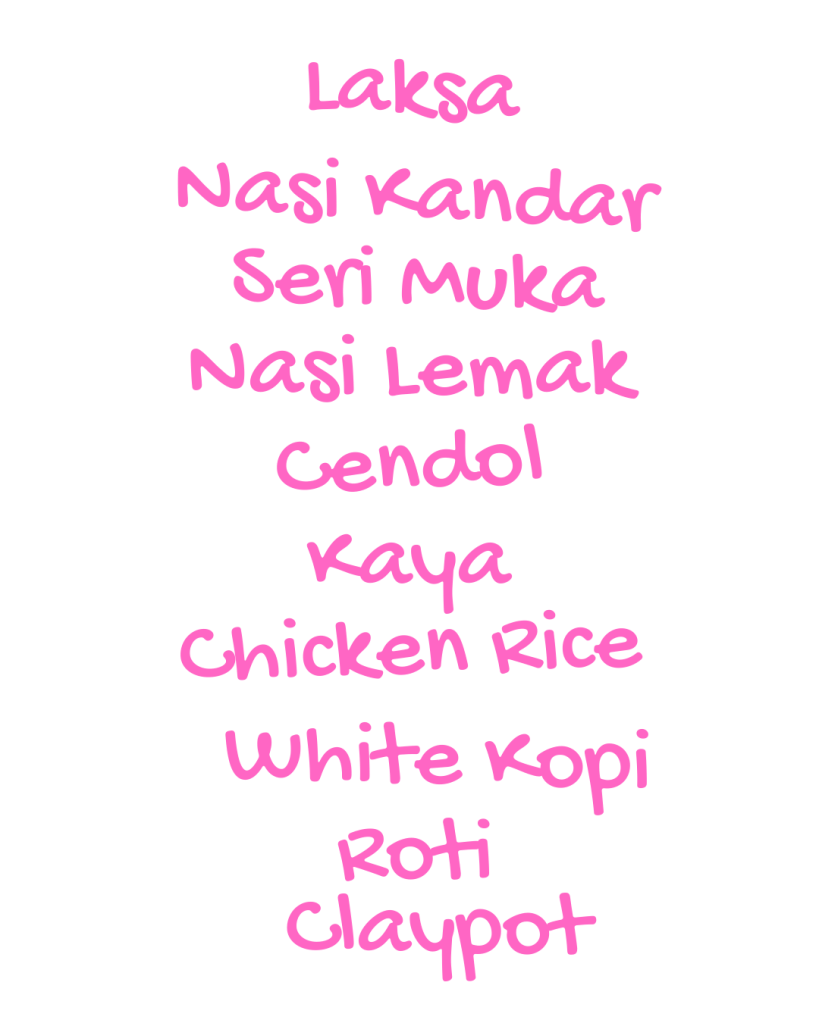 Laksa
Nasi Kandar
Seri Muka
Nasi Lemak
Cendol
Kaya
Chicken Rice
White Kopi
Roti
Claypot